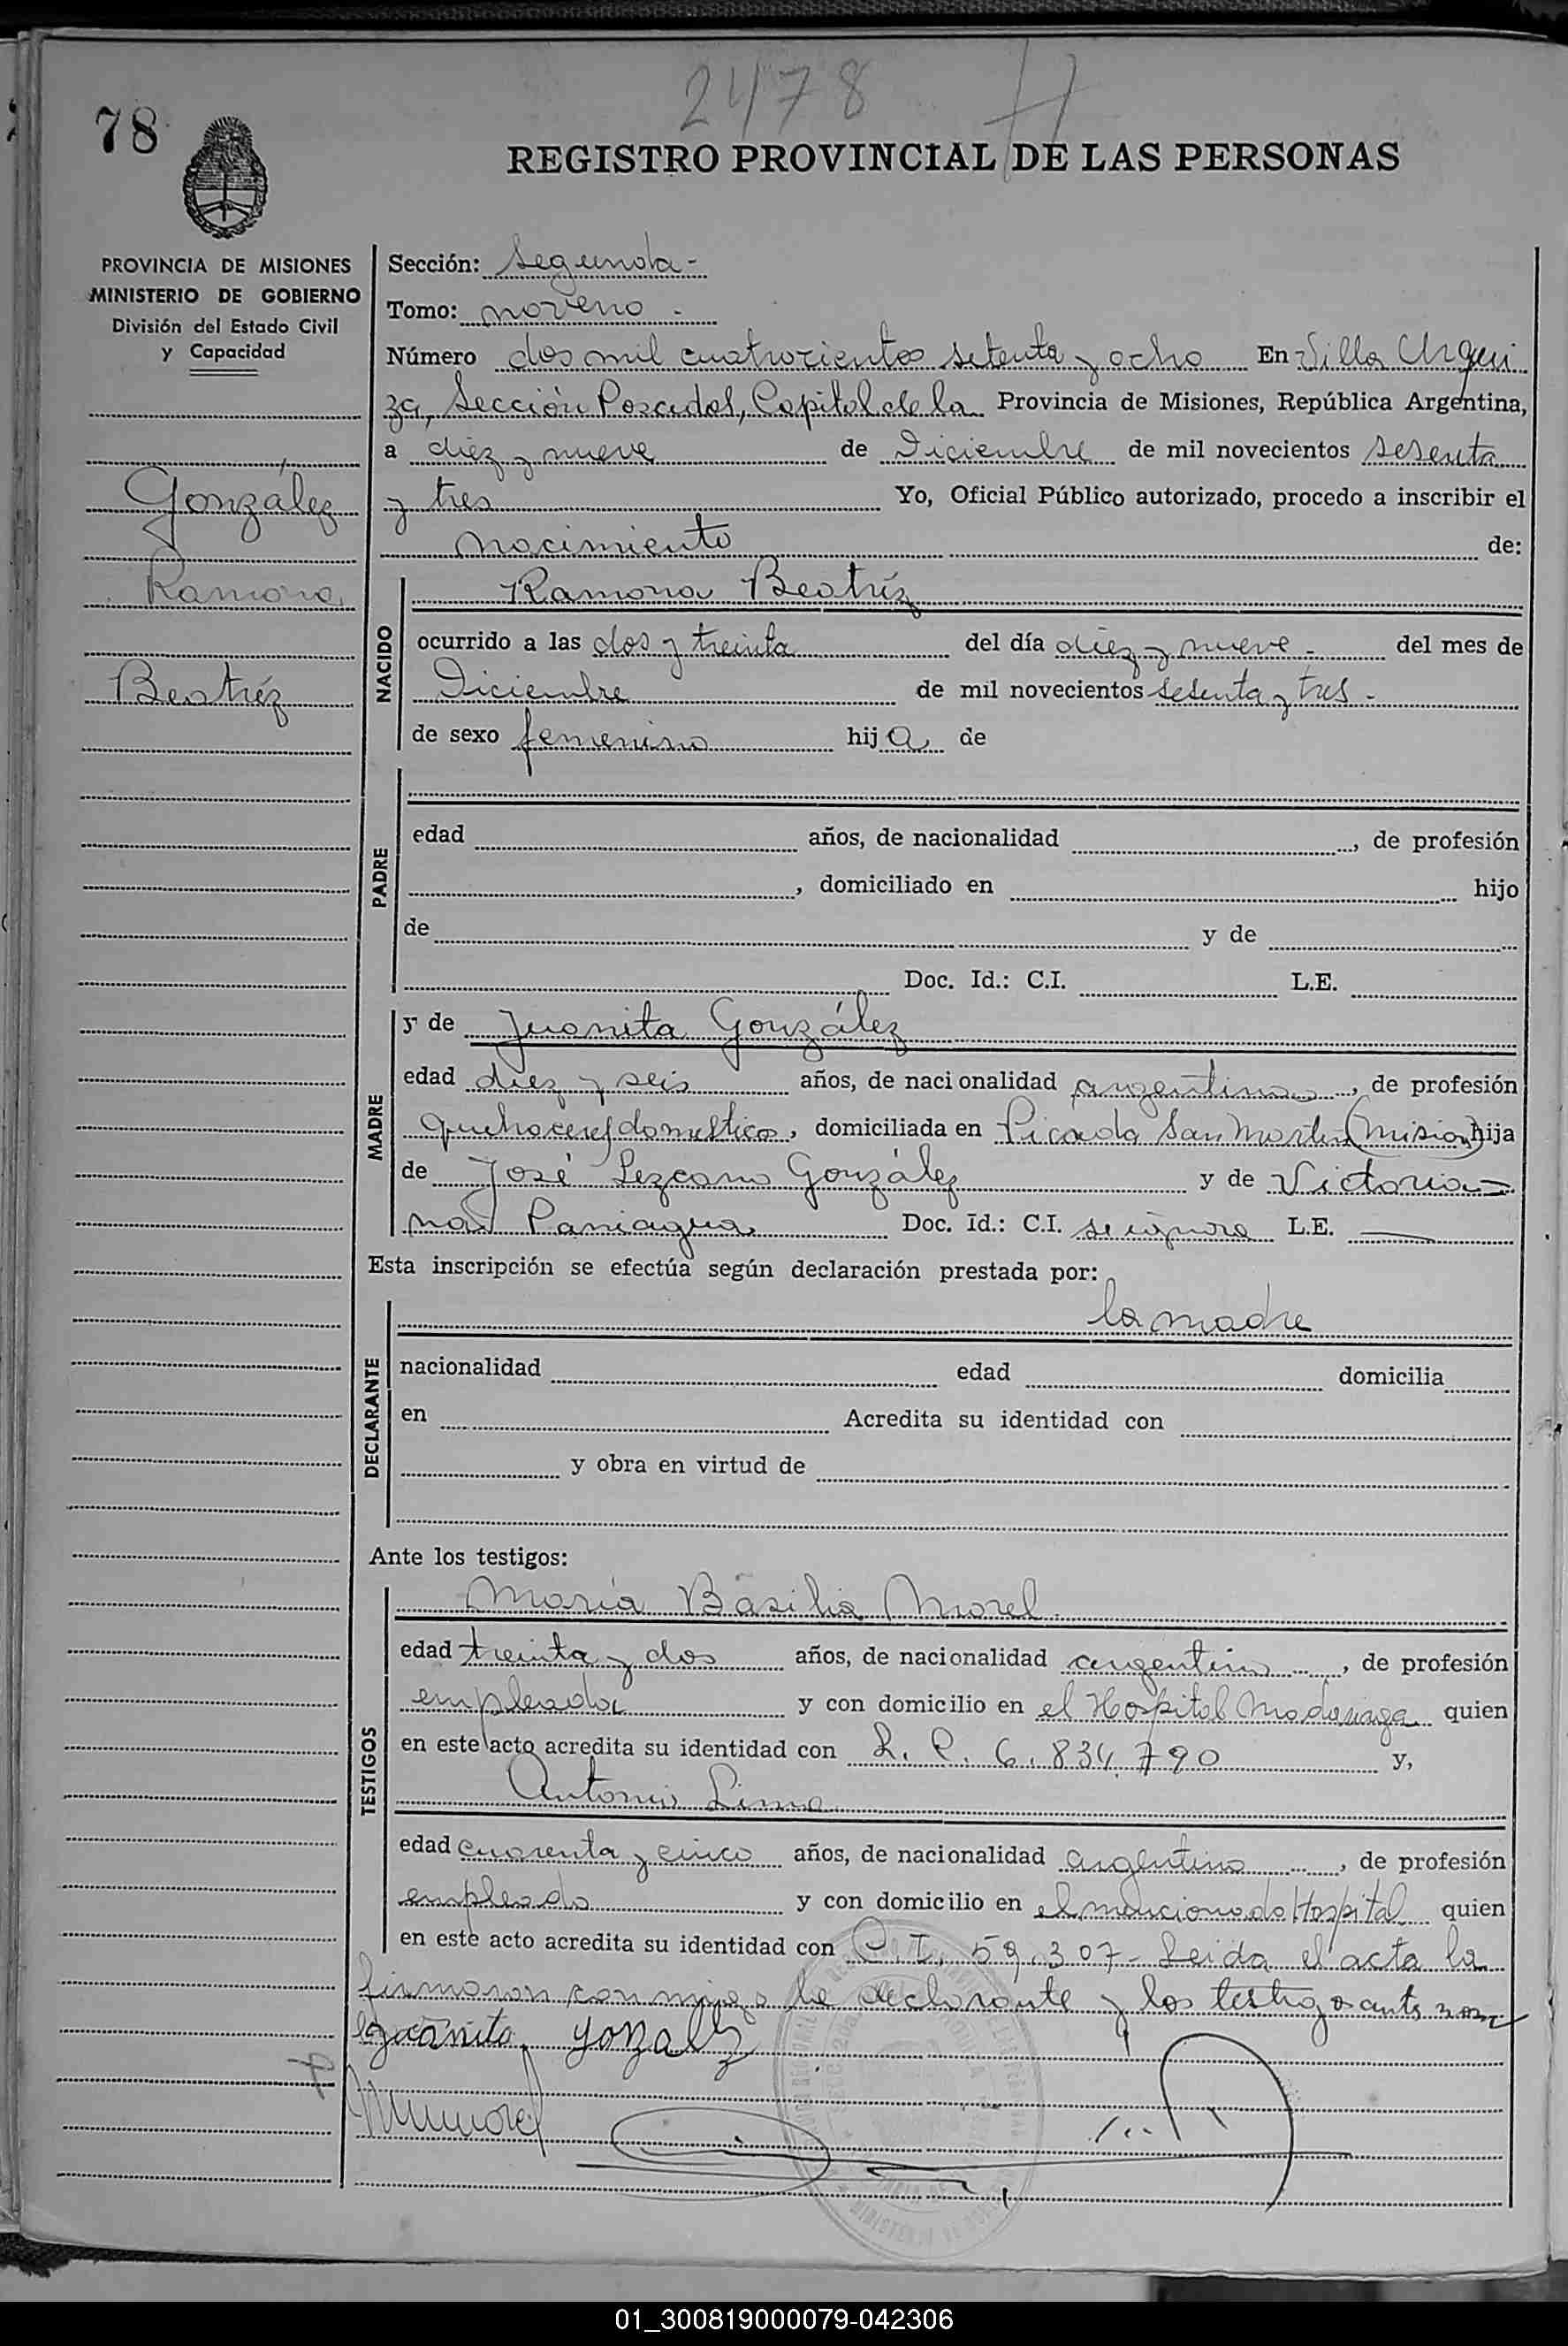 2478
78
REGISTRO PROVINCIAL DE LAS PERSONAS
PROVINCIA DE MISIONES
MINISTERIO DE GOBIERNO
División del Estado Civil
y Capacidad
González
Ramona
Beatríz
Sección: Segunda -
Tomo: noveno -
Número dos mil cuatrocientos setenta y ocho En Villa Urqui
za, Sección Posadas, Capital de la Provincia de Misiones, República Argentina,
a diez y nueve de Diciembre de mil novecientos sesenta
y tres Yo, Oficial Público autorizado, procedo a inscribir el
nacimiento de:
NACIDO
Ramona Beatríz
ocurrido a las dos y treinta del día diez y nueve - del mes de
Diciembre de mil novecientos sesenta y tres -
de sexo femenino hija de
PADRE
edad años, de nacionalidad , de profesión
, domiciliado en hijo
de y de
Doc. Id.: C.I. L.E.
MADRE
y de Juanita González
edad diez y seis años, de nacionalidad argentina, de profesión
quehaceres domestico, domiciliada en Picada San Martin (Mision) hija
de José Lezcano González y de Victoria
Paniagua Doc. Id.: C.I. se ignora L.E. —
Esta inscripción se efectúa según declaración prestada por:
la madre
DECLARANTE
nacionalidad edad domicilia
en Acredita su identidad con
y obra en virtud de
Ante los testigos:
TESTIGOS
María Basilia Morel
edad treinta y dos años, de nacionalidad argentina, de profesión
empleada y con domicilio en el Hospital Madariaga quien
en este acto acredita su identidad con L. C. 6.834.790 y,
Antonio Lima
edad cuarenta y cinco años, de nacionalidad argentino, de profesión
empleado y con domicilio en el mencionado Hospital quien
en este acto acredita su identidad con C.I. 59.307 - Leida el acta la
firmaron conmigo la declarante y los testigos ante
Juanita gonzalz
01_300819000079-042306